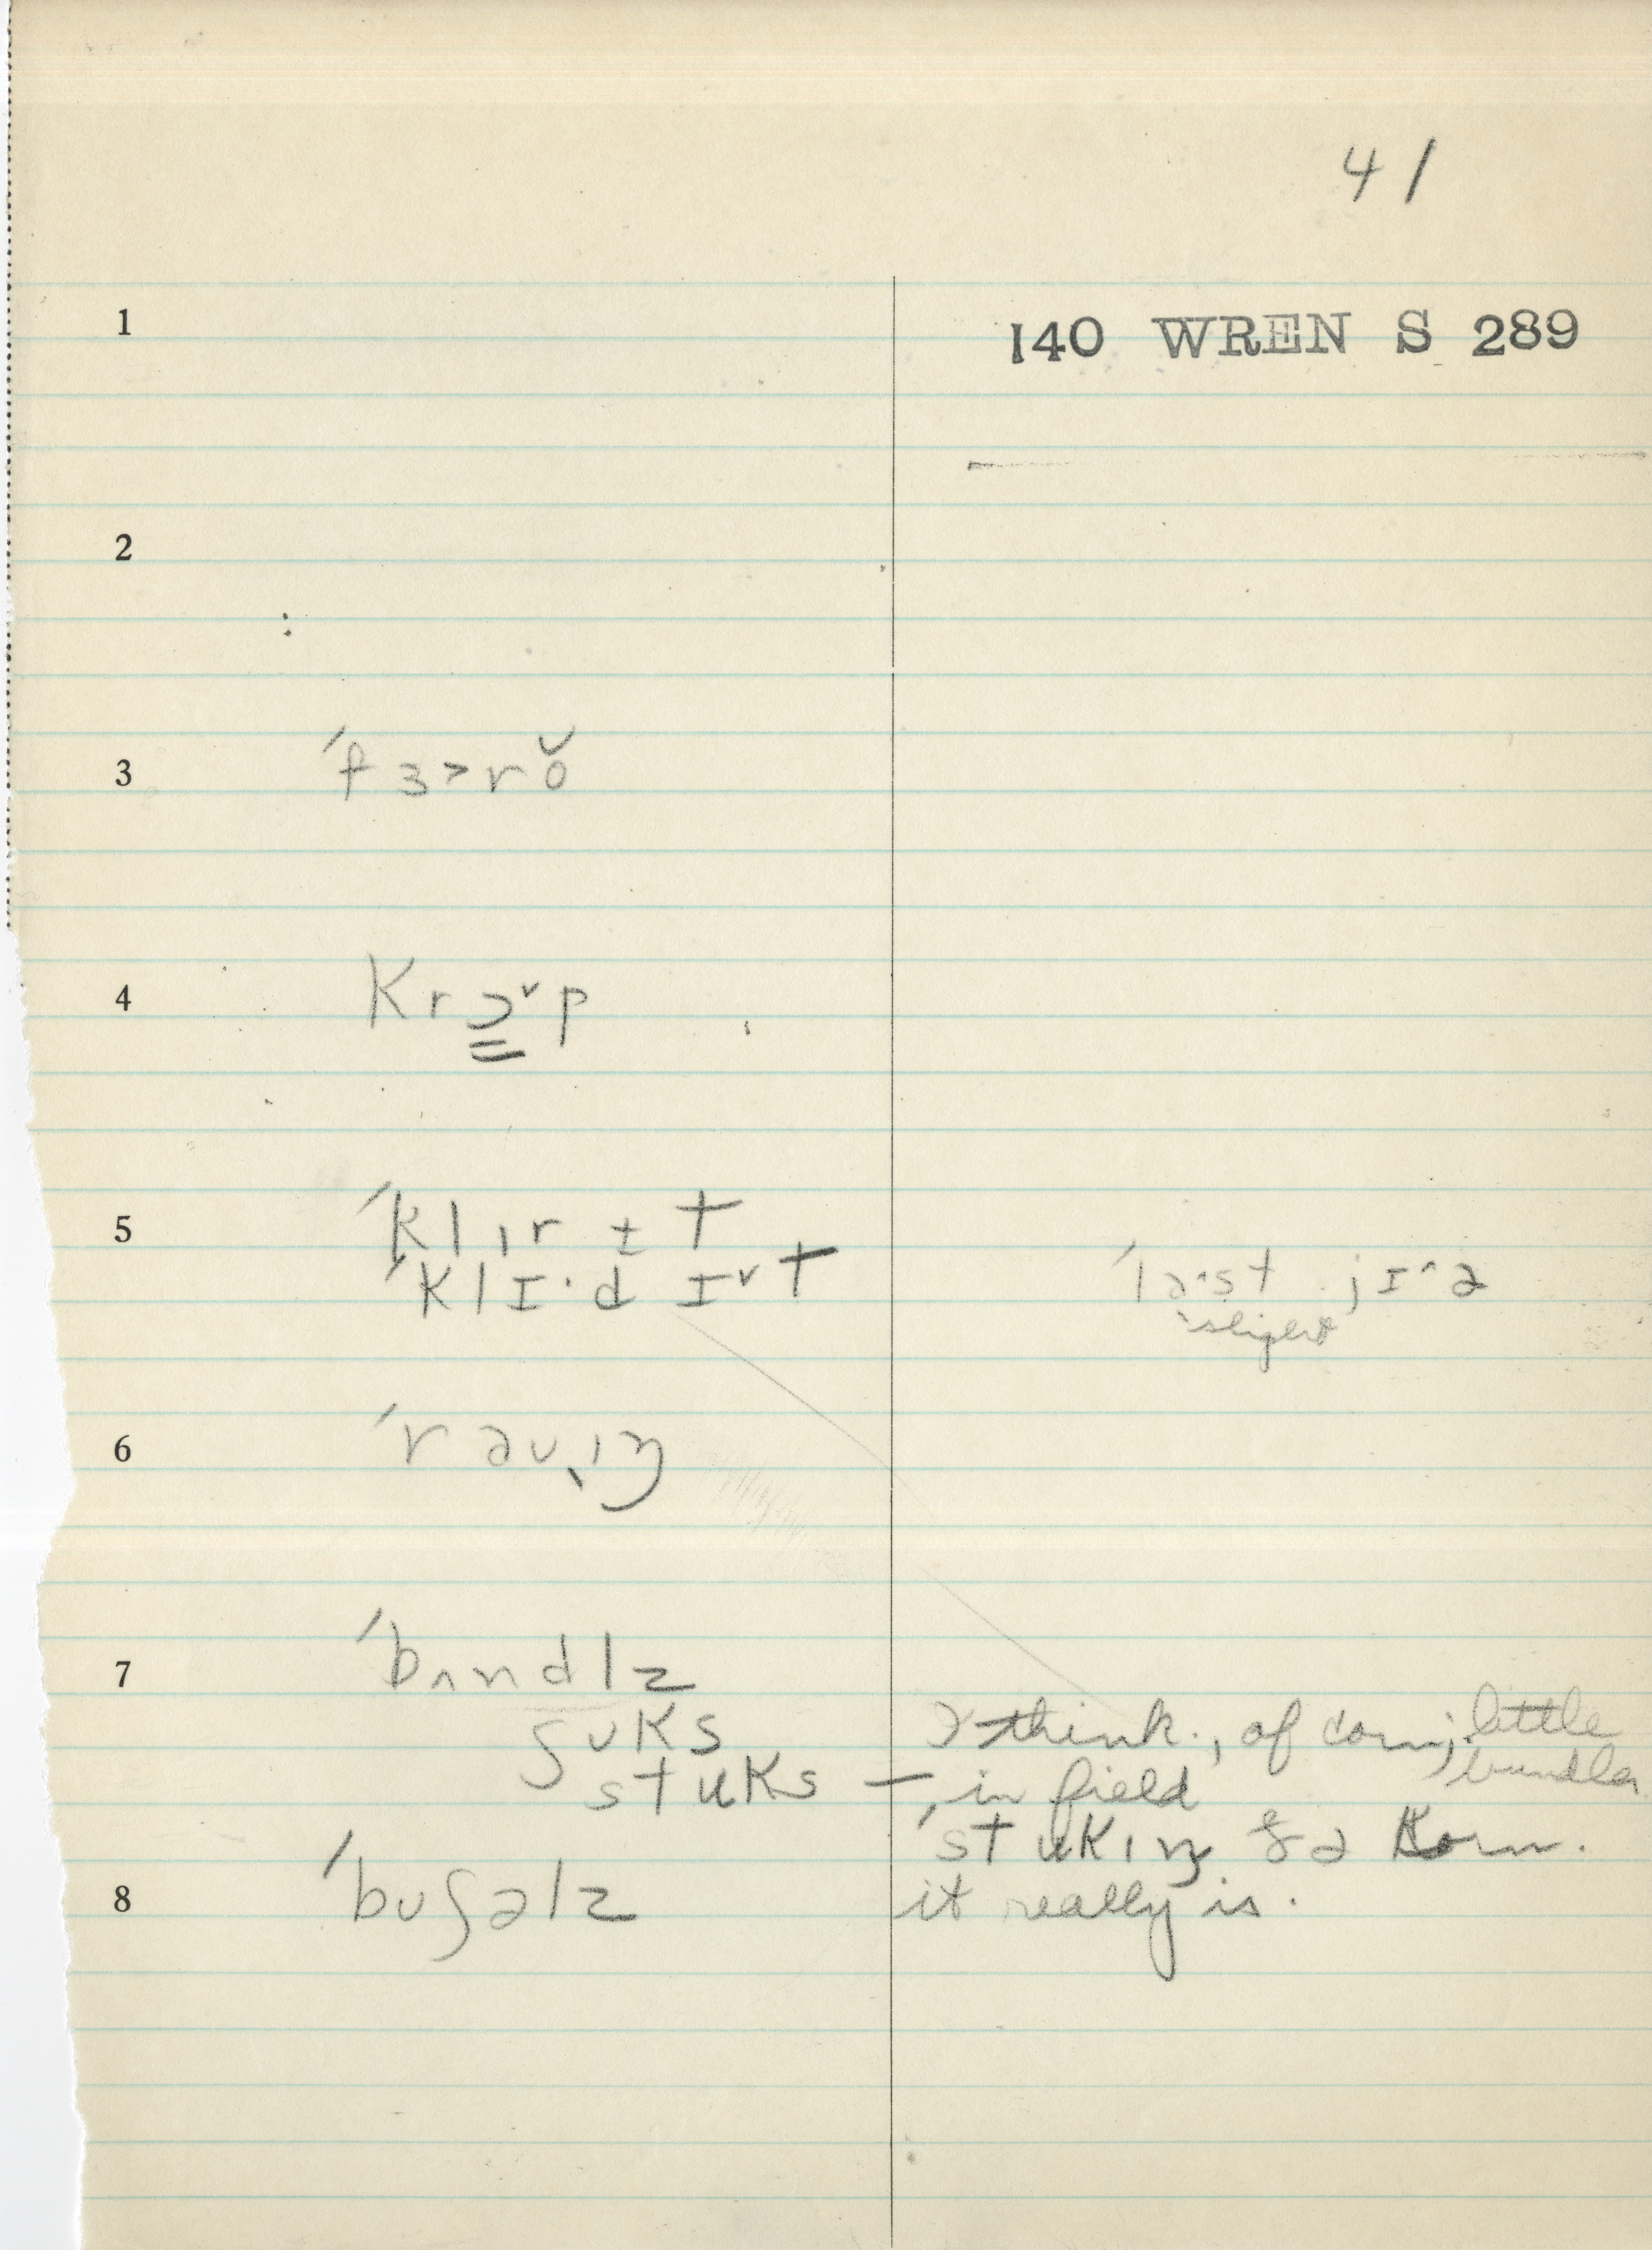 41
1 140 WREN S 289
2
3 ˈfɜ˃rŏ
4 krɔ̳˅p
5 ˈklɪrɨt
ˈklɪ·dɪ˅t ˈla˄st jɪ˄ə
slight
6 ˈraʊ̯ɪŋ
7 ˈbʌndlz
ʃʊks I think, of corn; little
stʊks — in field bundles
ˈstʊkɪŋ ðə korn.
8 ˈbʊʃəlz it really is.